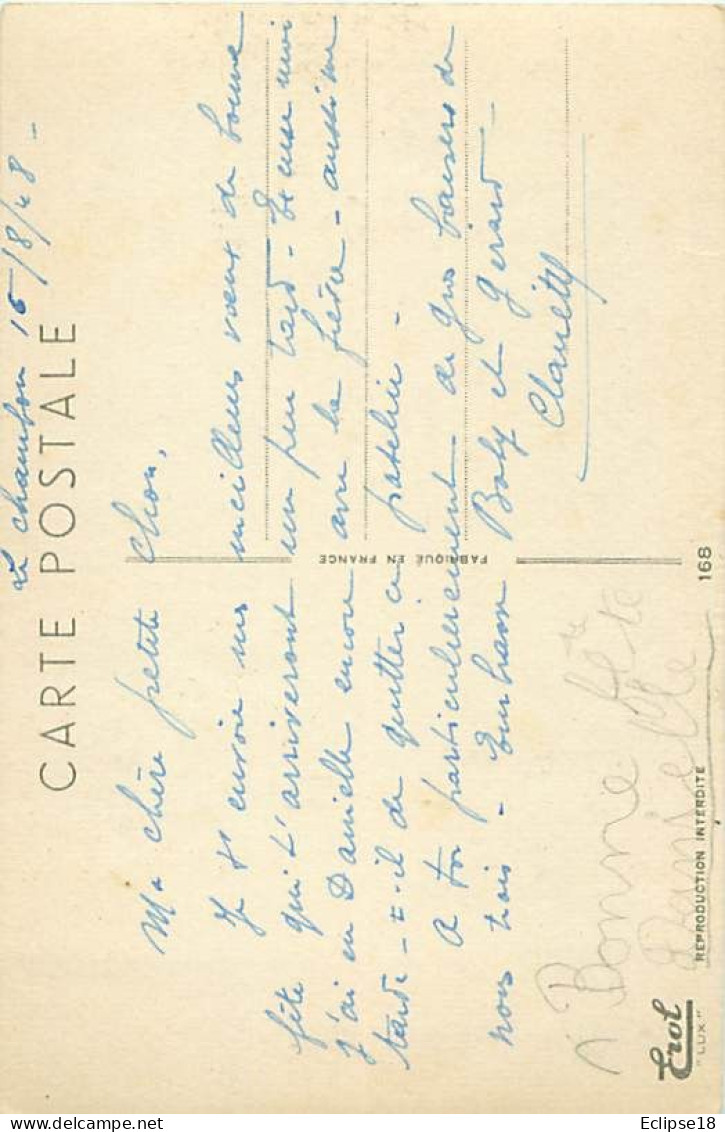 Le Chambon 16/8/48 -
CARTE POSTALE
Ma chère petite Chou,
Je t'envoie mes meilleurs vœux de bonne
fête qui t'arriveront un peu tard - Excuse moi
j'ai eu Danielle encore avec la fièvre - aussi me
tarde-t-il de quitter ce patelin -
A toi particulièrement de gros baisers de
nous trois - Embrasse Baby et Gérard -
FABRIQUÉ EN FRANCE
Bonne fête
Danielle
Erol
"LUX"
REPRODUCTION INTERDITE
168
Eclipse18